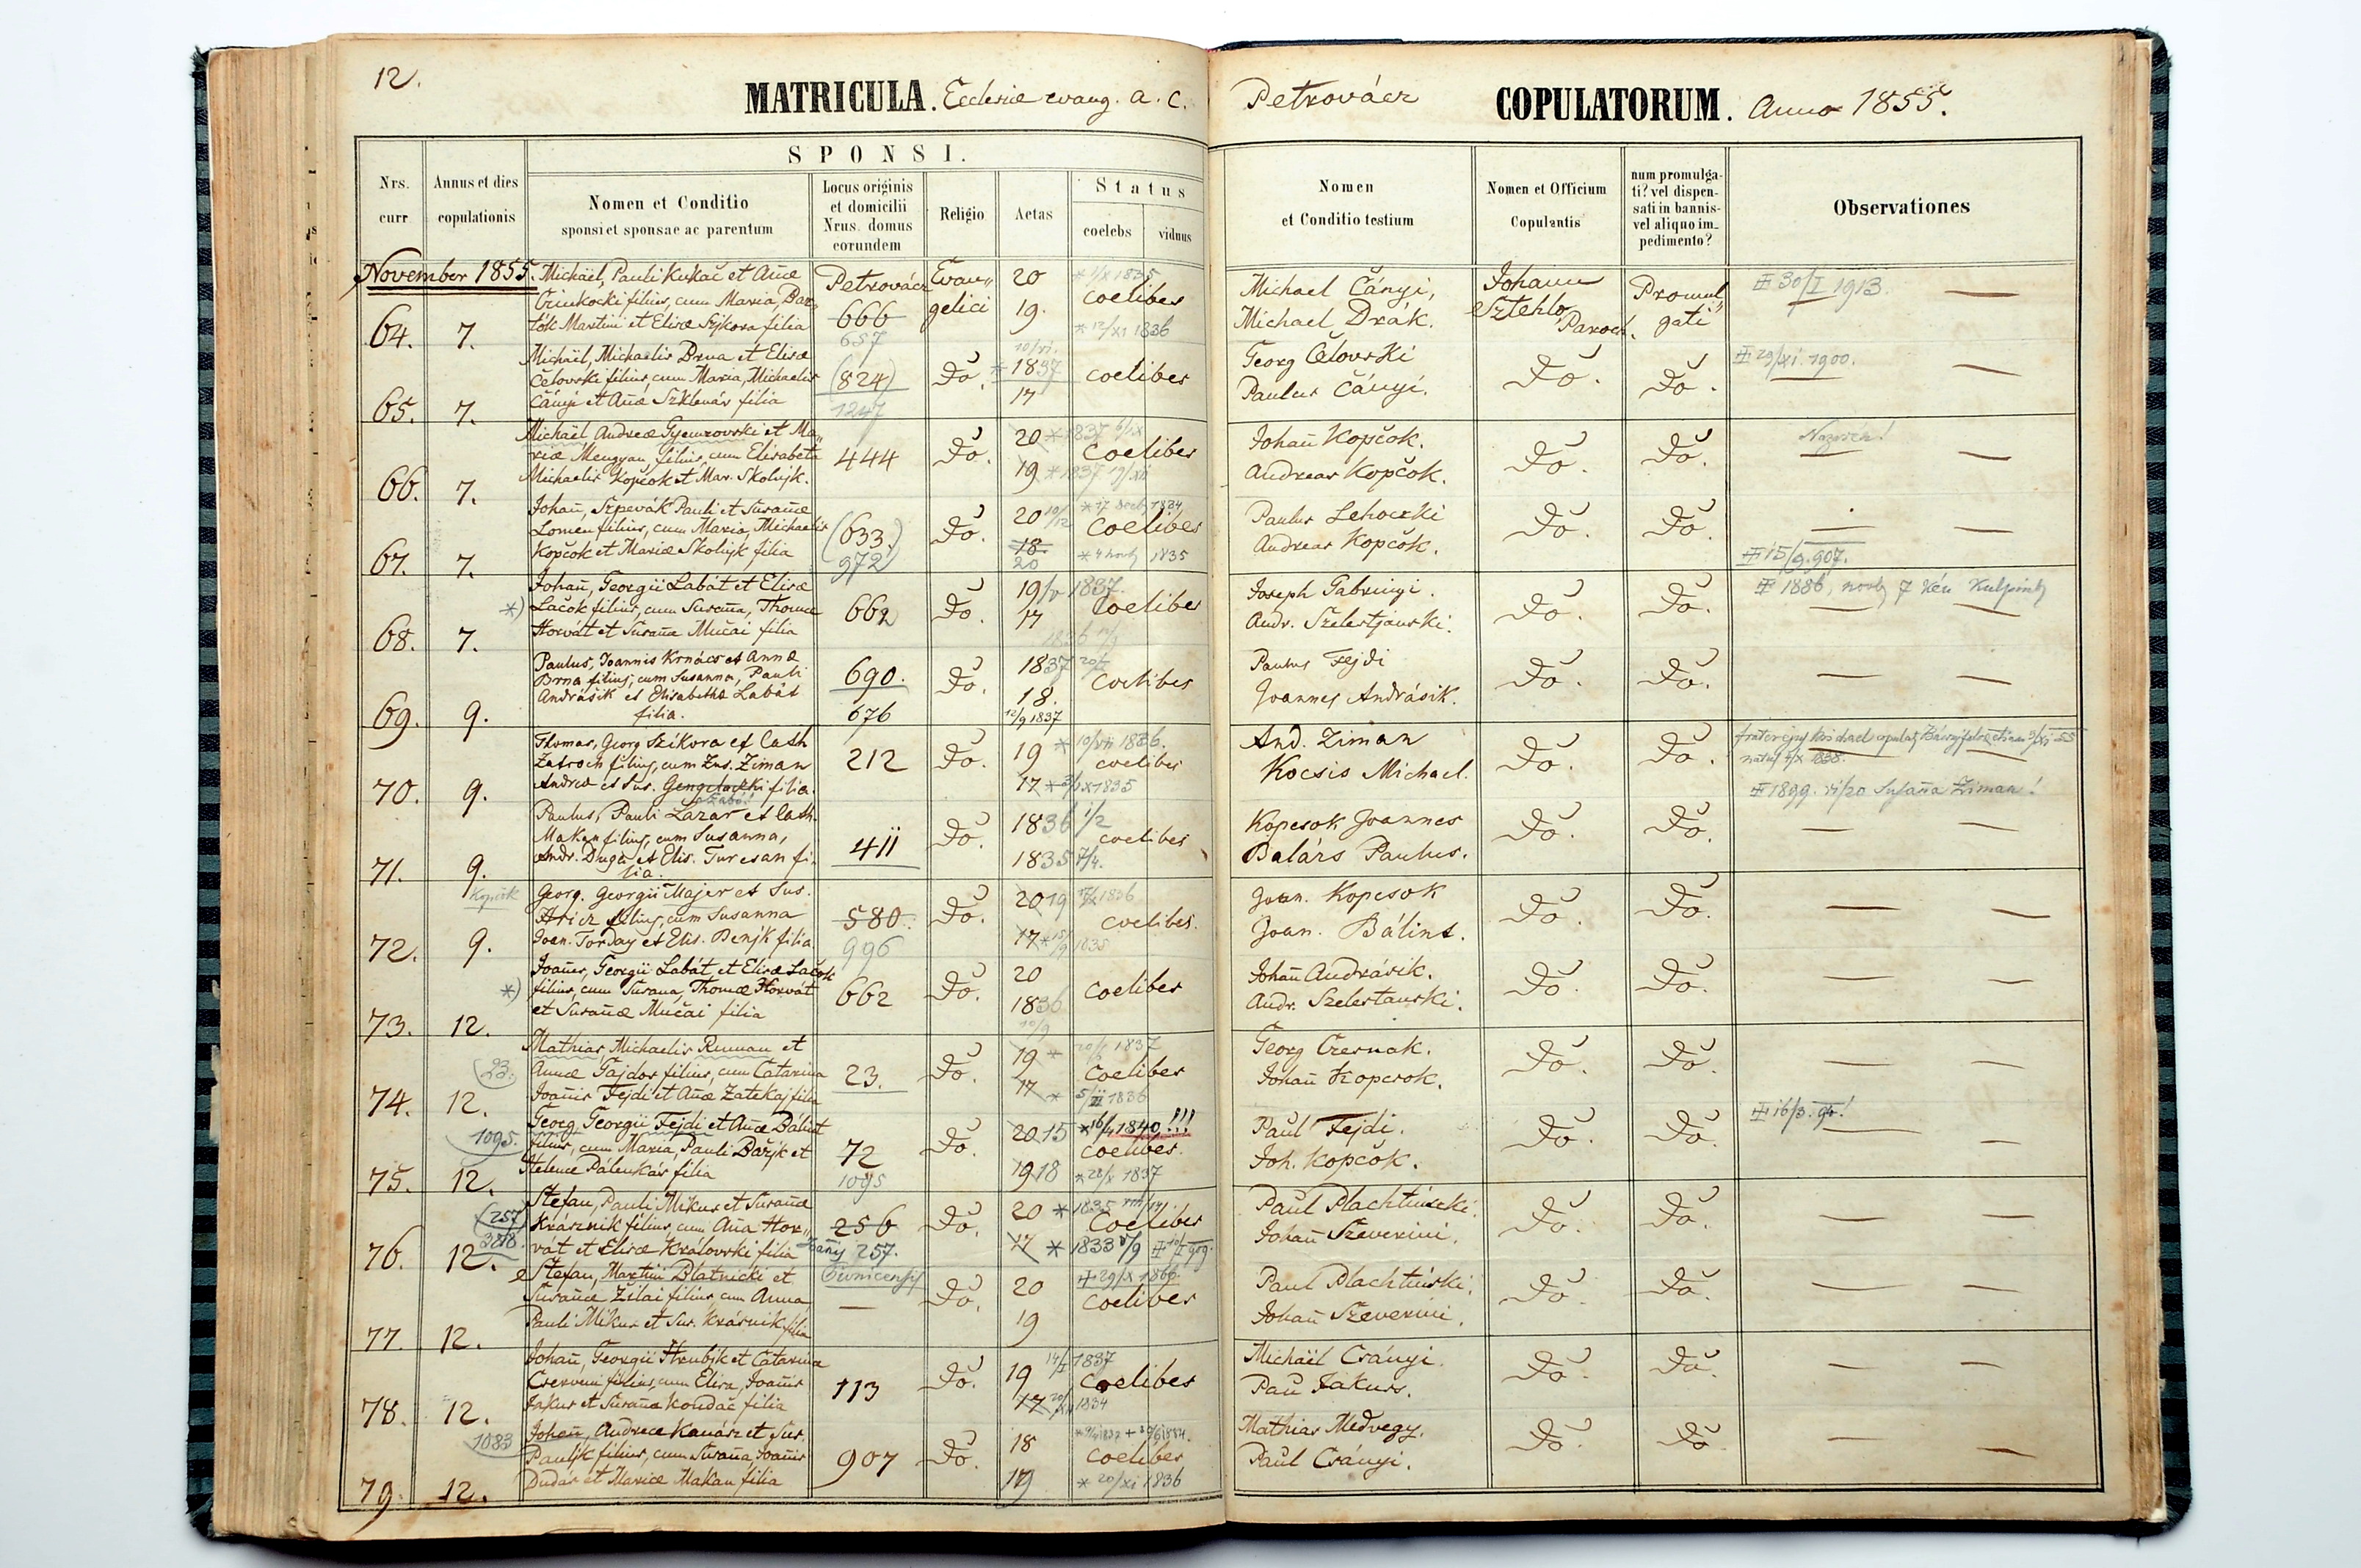 12.
MATRICULA. Ecclesiæ evang. a. c.
Petrovácz COPULATORUM. Anno 1855.
SPONSI.
Nrs. curr
Annus et dies copulationis
Nomen et Conditio
sponsi et sponsae ac parentum
Locus originis
et domicilii
Nrus. domus
eorundem
Religio
Aetas
Status
coelebs
viduus
Nomen
et Conditio testium
Nomen et Officium
Copulantis
num promulga-
ti? vel dispen-
sati in bannis-
vel aliquo im-
pedimento?
Observationes
November 1855.
Michaël, Pauli Kukač et Añæ
filius, cum Maria,
Martini et Elisæ Sýkora filia
64. 7.
Petrovácz
666
657
Evan„
gelici
20
19.
* 1/X 1835
coelibes
* 12/XI 1836
Michael Čányi,
Michael Drák.
Johann
Sztehlo,
Paroch.
Promul„
gati
30/I 1913.
Michaël, Michaelis Brna et Elisæ
Čelovski filius, cum Maria, Michaelis
Čányi et Añæ Szklenár filia
65. 7.
(824)
1247
Do.
10/VI.
* 1837
17
coelibes
Georg Čelovski
Paulus Čányi.
Do.
Do.
29/XI. 1900.
Michaël Andreæ Gyemrovski et Ma„
riæ Mengyan filius, cum Elisabeta
Michaelis Kopčok et Mar. Skolnjk.
66. 7.
444
Do.
20 * 1837 6/IX
19 * 1837 19/XII
coelibes
Johañ Kopčok.
Andreas Kopčok.
Do.
Do.
Johañ, Szpevák Pauli et Susañæ
Lomen filius, cum Maria, Michaelis
Kopčok et Mariæ Skolnjk filia
67. 7.
(633.)
972
Do.
20 10/12
18.
20
coelibes
1835
Paulus Lehoczki
Andreas Kopčok.
Do.
Do.
15/9. 907.
Johañ, Georgii Labát et Elisæ
*) Lačok filius, cum Susaña, Thomæ
Horvát et Susaña Mučai filia
68. 7.
662
Do.
19/V 1837.
17
coelibes
Joseph Gabrinyi.
Andr. Szelestjanski.
Do.
Do.
1886,
Paulus, Joannis Krnács et Annæ
Brna filius, cum Susanna, Pauli
Andrásik et Elisabethæ Labát
filia.
69. 9.
690.
676
Do.
1837
18.
12/9 1837
coelibes
Paulus Fejdi
Joannes Andrásik.
Do.
Do.
Thomas, Georg Szikora et Cath
Zatroch filius, cum Zus. Ziman
Andreæ et Sus. filia.
70. 9.
212
Do.
19 * 10/VII 1836.
17
coelibes
And. Ziman
Kocsis Michael.
Do.
Do.
1899. VI/20 Susaña Ziman!
Paulus, Pauli Lazar et Cath.
Makan filius, cum Susanna,
Andr. Duga et Elis. Turcsan fi-
lia.
71. 9.
411
Do.
1836 1/2
1835 7/4.
coelibes
Kopcsok Joannes
Balázs Paulus.
Do.
Do.
Georg. Georgii Majer et Sus.
Hricz filius, cum Susanna
Joan. Torday et Elis. Benjk filia.
72. 9.
580.
996
Do.
20 19 1836
17 1835
coelibes.
Joan. Kopcsok
Joan. Bálint.
Do.
Do.
Joañes, Georgii Labát, et Elisæ Lačok
*) filius, cum Susana, Thomæ Horvát
et Susañæ Mučai filia
73. 12.
662
Do.
20
1836
10/9
coelibes
Johañ Andrásik.
Andr. Szelestanski.
Do.
Do.
Mathias, Michaelis Ruman et
Annæ Gajdos filius, cum Catarina
Joañis Fejdi et Añæ Zatekaj filia
23.
74. 12.
23.
Do.
19 * 1837
17 * 5/II 1836
coelibes
Georg Czesnak.
Johañ Kopcsok.
Do.
Do.
Georg, Georgii Fejdi et Añæ Bálint
filius, cum Maria, Pauli Bažjk et
Helenæ Pálenkás filia
1095.
75. 12.
72
1095
Do.
20 15 * 16/4 1840!!!
coelibes.
19 18 * 28/X 1837
Paul Fejdi.
Joh. Kopčok.
Do.
Do.
Stefan, Pauli Mikus et Susañæ
Krásznik filius, cum Aña Hor„
vát et Elisæ Královski filia
257
76. 12.
256
257.
Do.
20 * 1835
coelibes
17 * 1833
Paul Plachtinszki.
Johañ Szeverini.
Do.
Do.
Stefan, Martini Blatnicki et
Susañæ Žilai filius, cum Anna,
Pauli Mikus et Sus. Krásnik filia
77. 12.
Do.
20
19
29/X 1866.
coelibes
Paul Plachtinski.
Johañ Szeverini.
Do.
Do.
Johañ, Georgii Hrubjk et Catarina
Cserveni filius, cum Elisa, Joañis
Jakus et Susaña Kondač filia
78. 12.
113
Do.
19 14/I 1837
17 1834
coelibes
Michaël Csányi.
Pau Jakuss.
Do.
Do.
Johañ, Andreæ Kanász et Sus.
Pauljk filius, cum Susaña, Joañis
Dudás et Mariæ Makan filia
1083
79. 12.
907
Do.
18
19
coelibes
* 20/XI 1836
Mathias Medvegy.
Paul Csányi.
Do.
Do.